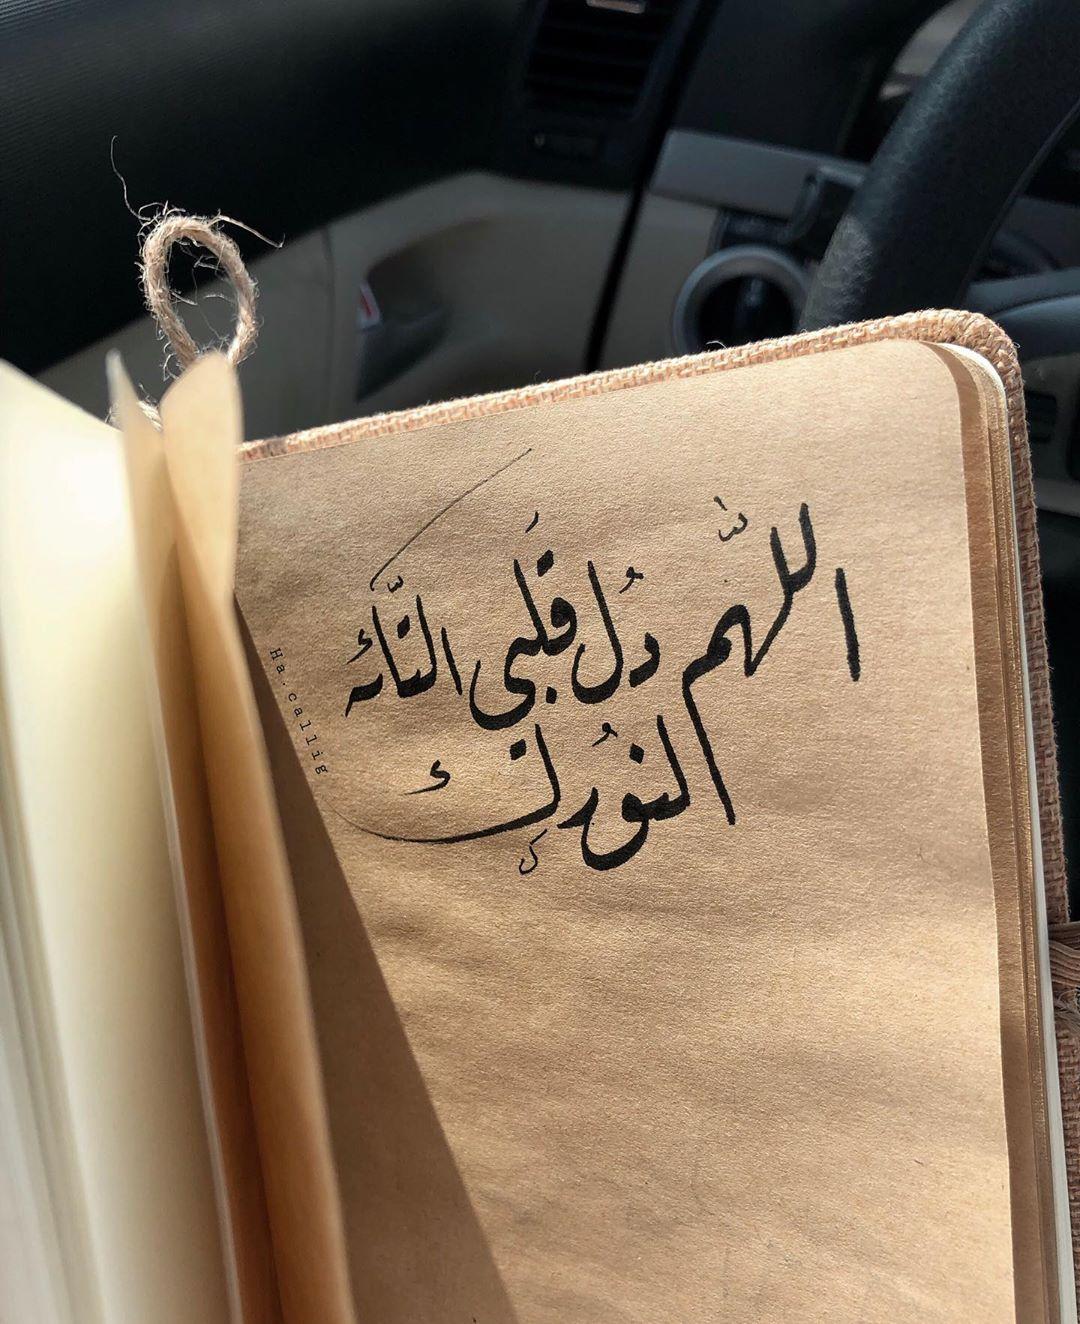 اللّهم دُل قلبي التَّائه
لنُورك
Ha.callig